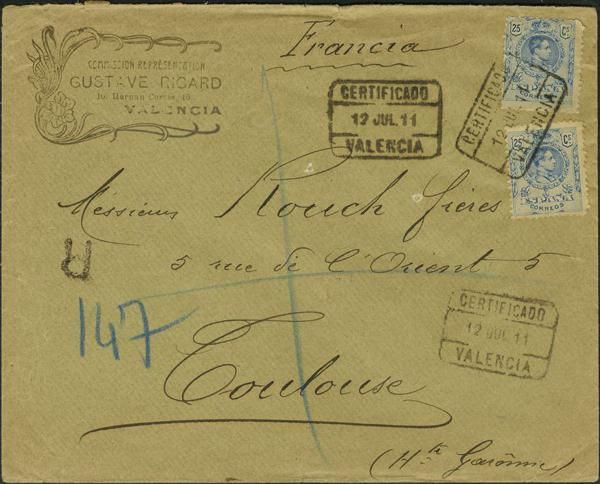 Francia
COMMISSION REPRÉSENTATION
GUSTAVE RICARD
10, Hernán Cortés, 10
VALENCIA
25 Cs.
CORREOS
CERTIFICADO
12 JUL. 11
VALENCIA
CERTIFICADO
12 JUL. 11
VALENCIA
25 Cs.
CORREOS
Messieurs Rouch frères
5 rue de l'Orient 5
R
147
CERTIFICADO
12 JUL 11
VALENCIA
Toulouse
(Hte Garonne)